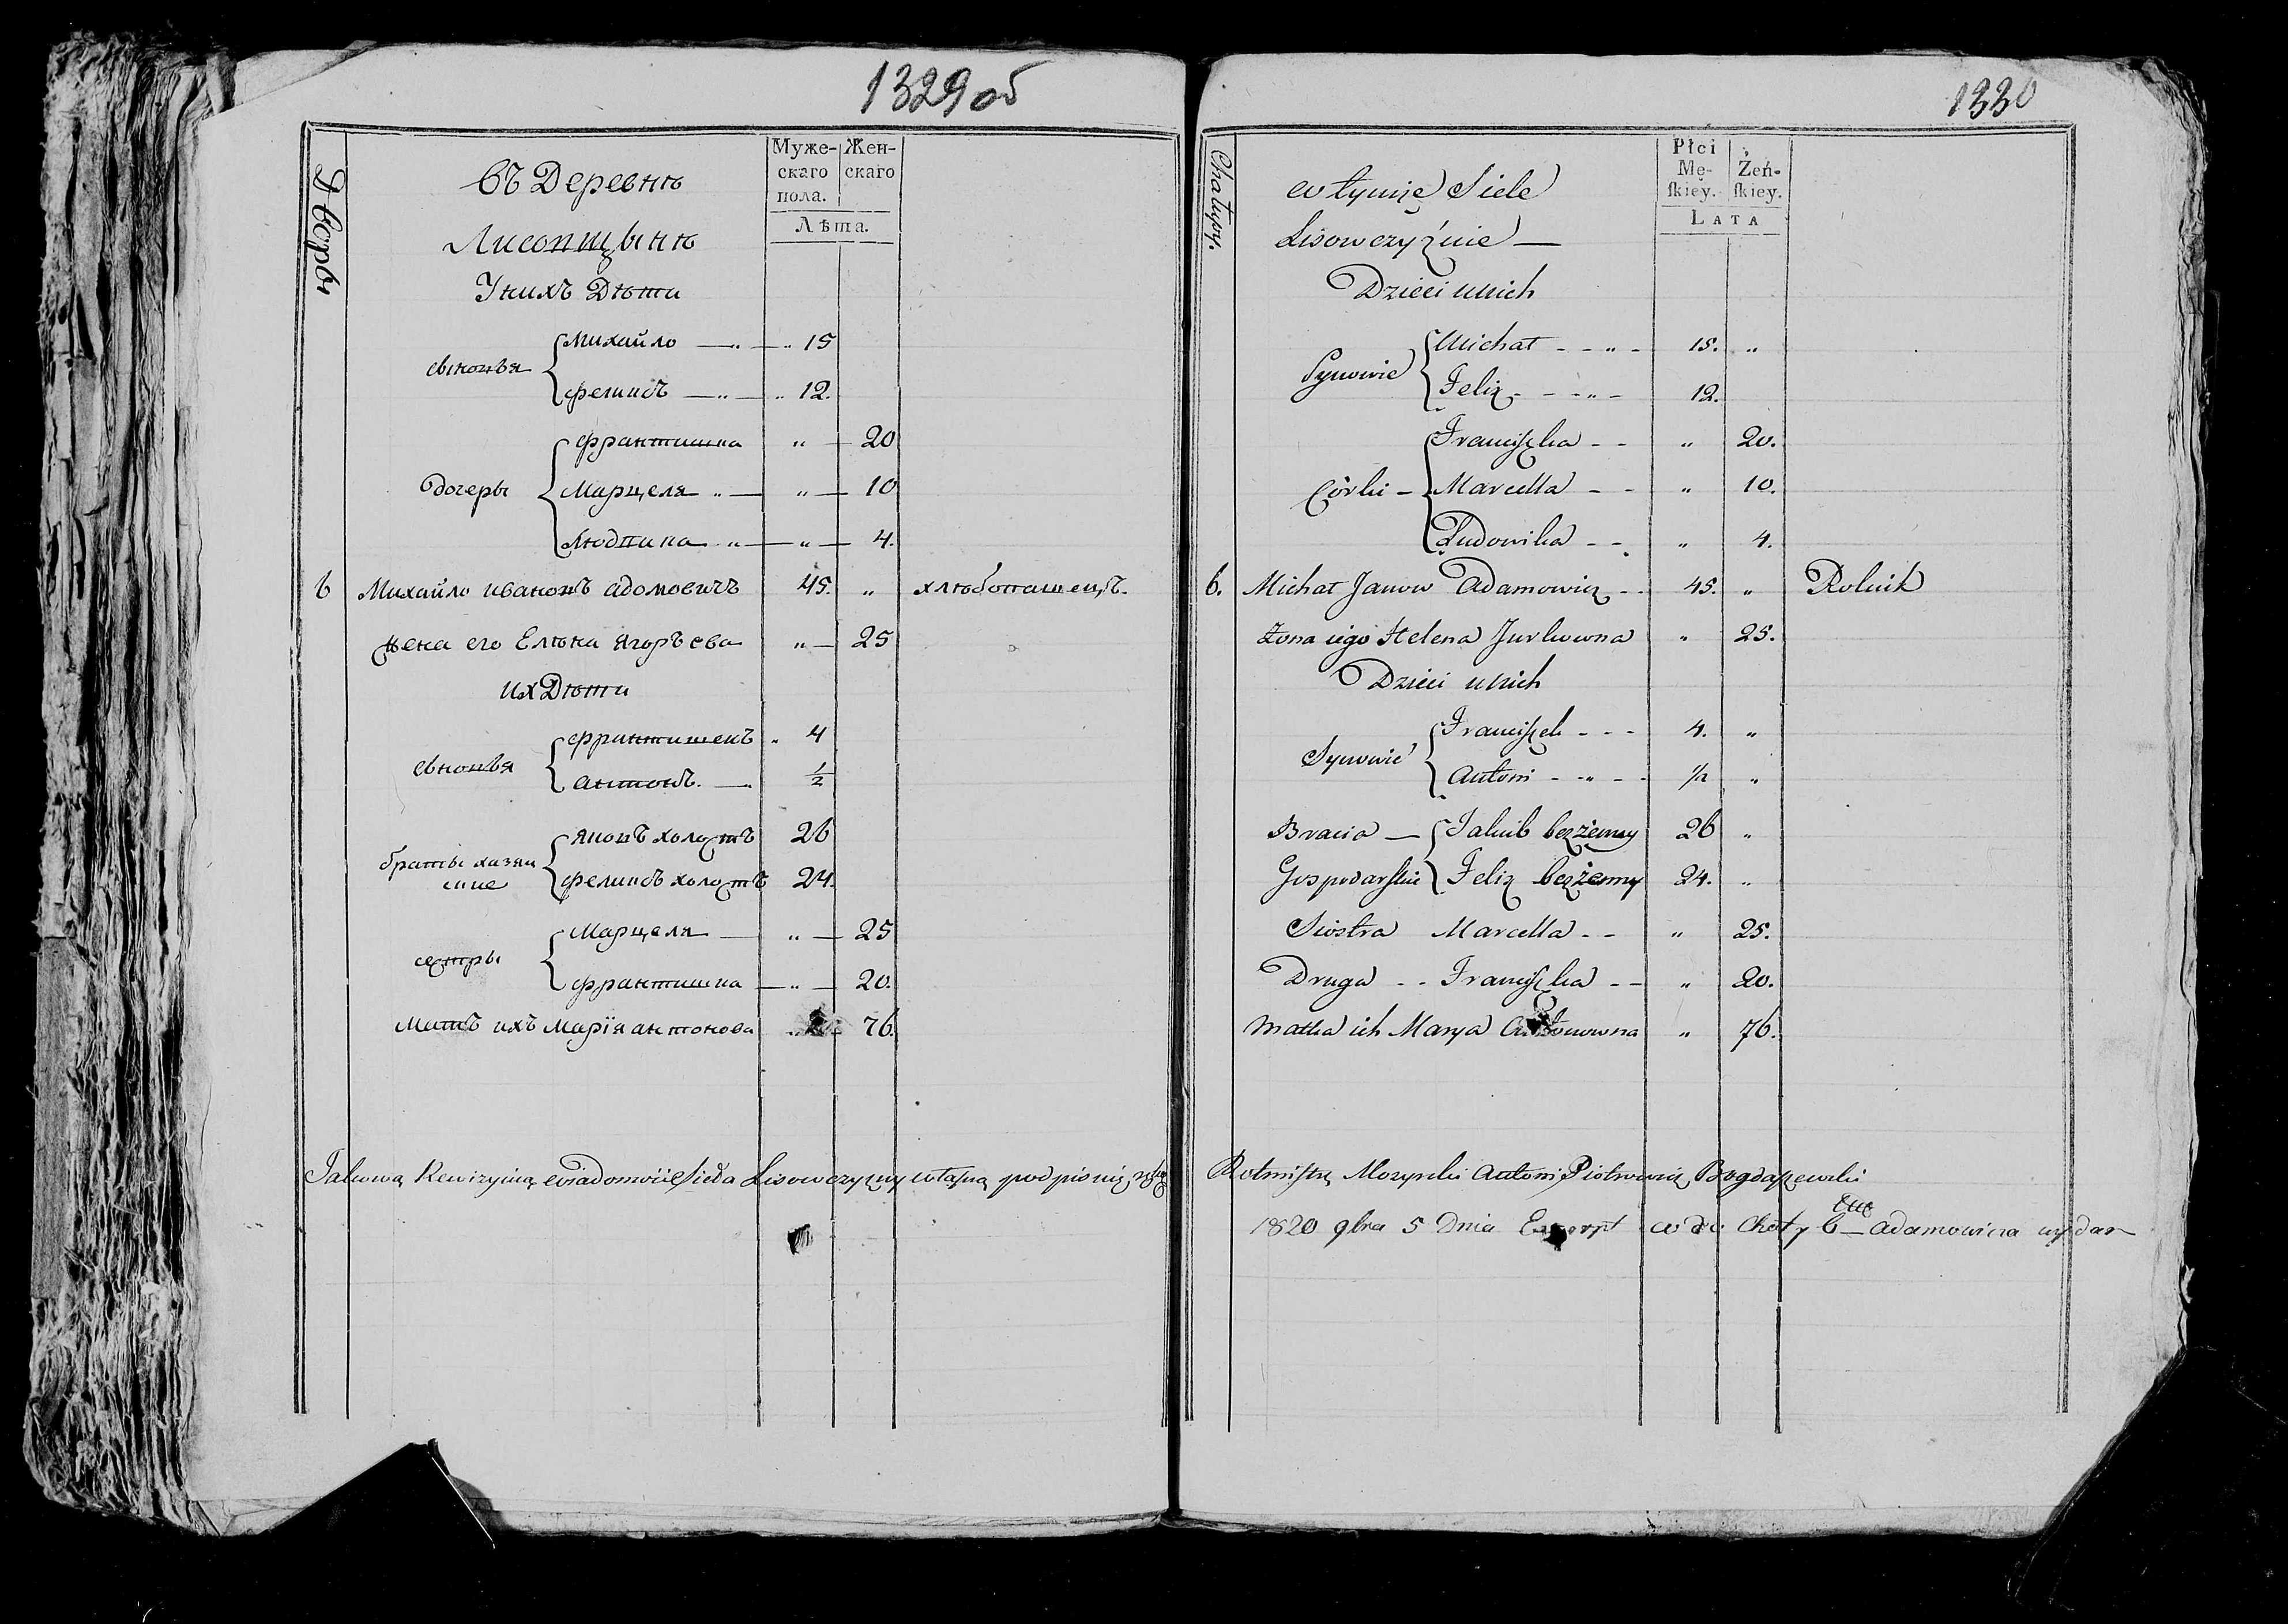 1329 об
Дворы
въ Деревнѣ
Лисовщынѣ
Муже-
скаго
пола.
Жен-
скаго
Лѣта.
У нихъ Дѣти
сыновья
Михайло 15
Феликсъ 12.
дочеры
Франтишка " 20
Марцеля " 10
Людвика " 4.
6 Михайло Ивановъ Адомовичъ 45. " хлюбопашецъ.
жена его Елѣна Ягорьева " 25
их Дѣти
сыновья
Франтишекъ 4
Антонъ 1/2
братьи хазяи
ские
Яковъ холостъ 26
Феликсъ холостъ 24.
сестры
Марцеля " 25
Франтишка " 20.
Мать ихъ Марія Антонова " 76.
Takową Rewizyiną wiadomość Sioła Lisowczyzny własną podpisuię ręką
1330
Chałupy.
w tymże Siele
Lisowczyźnie
Płci
Mę-
skiey.
Żeń-
skiey.
LATA
Dzieci u nich
Synowie
Michał 15. "
Felix 12.
Córki
Franciszka " 20.
Marcella " 10.
Ludowika " 4.
6. Michał Janow Adamowicz 45. " Rolnik
Żona iego Helena Jurkowna " 25.
Dzieci u nich
Synowie
Franciszek 4. "
Antoni 1/2 "
Bracia
Gospodarskie
Jakub bezżenny 26 "
Felix bezżenny 24. "
Siostra Marcella " 25.
Druga Franciszka " 20.
Matka ich Marya Antonowna " 76.
Rotmistrz Mozyrski Antoni Piotrowicz Bogdaszewski
1820 9bra 5 Dnia Exscrypt co do Chaty 6 Adamowicza wydan